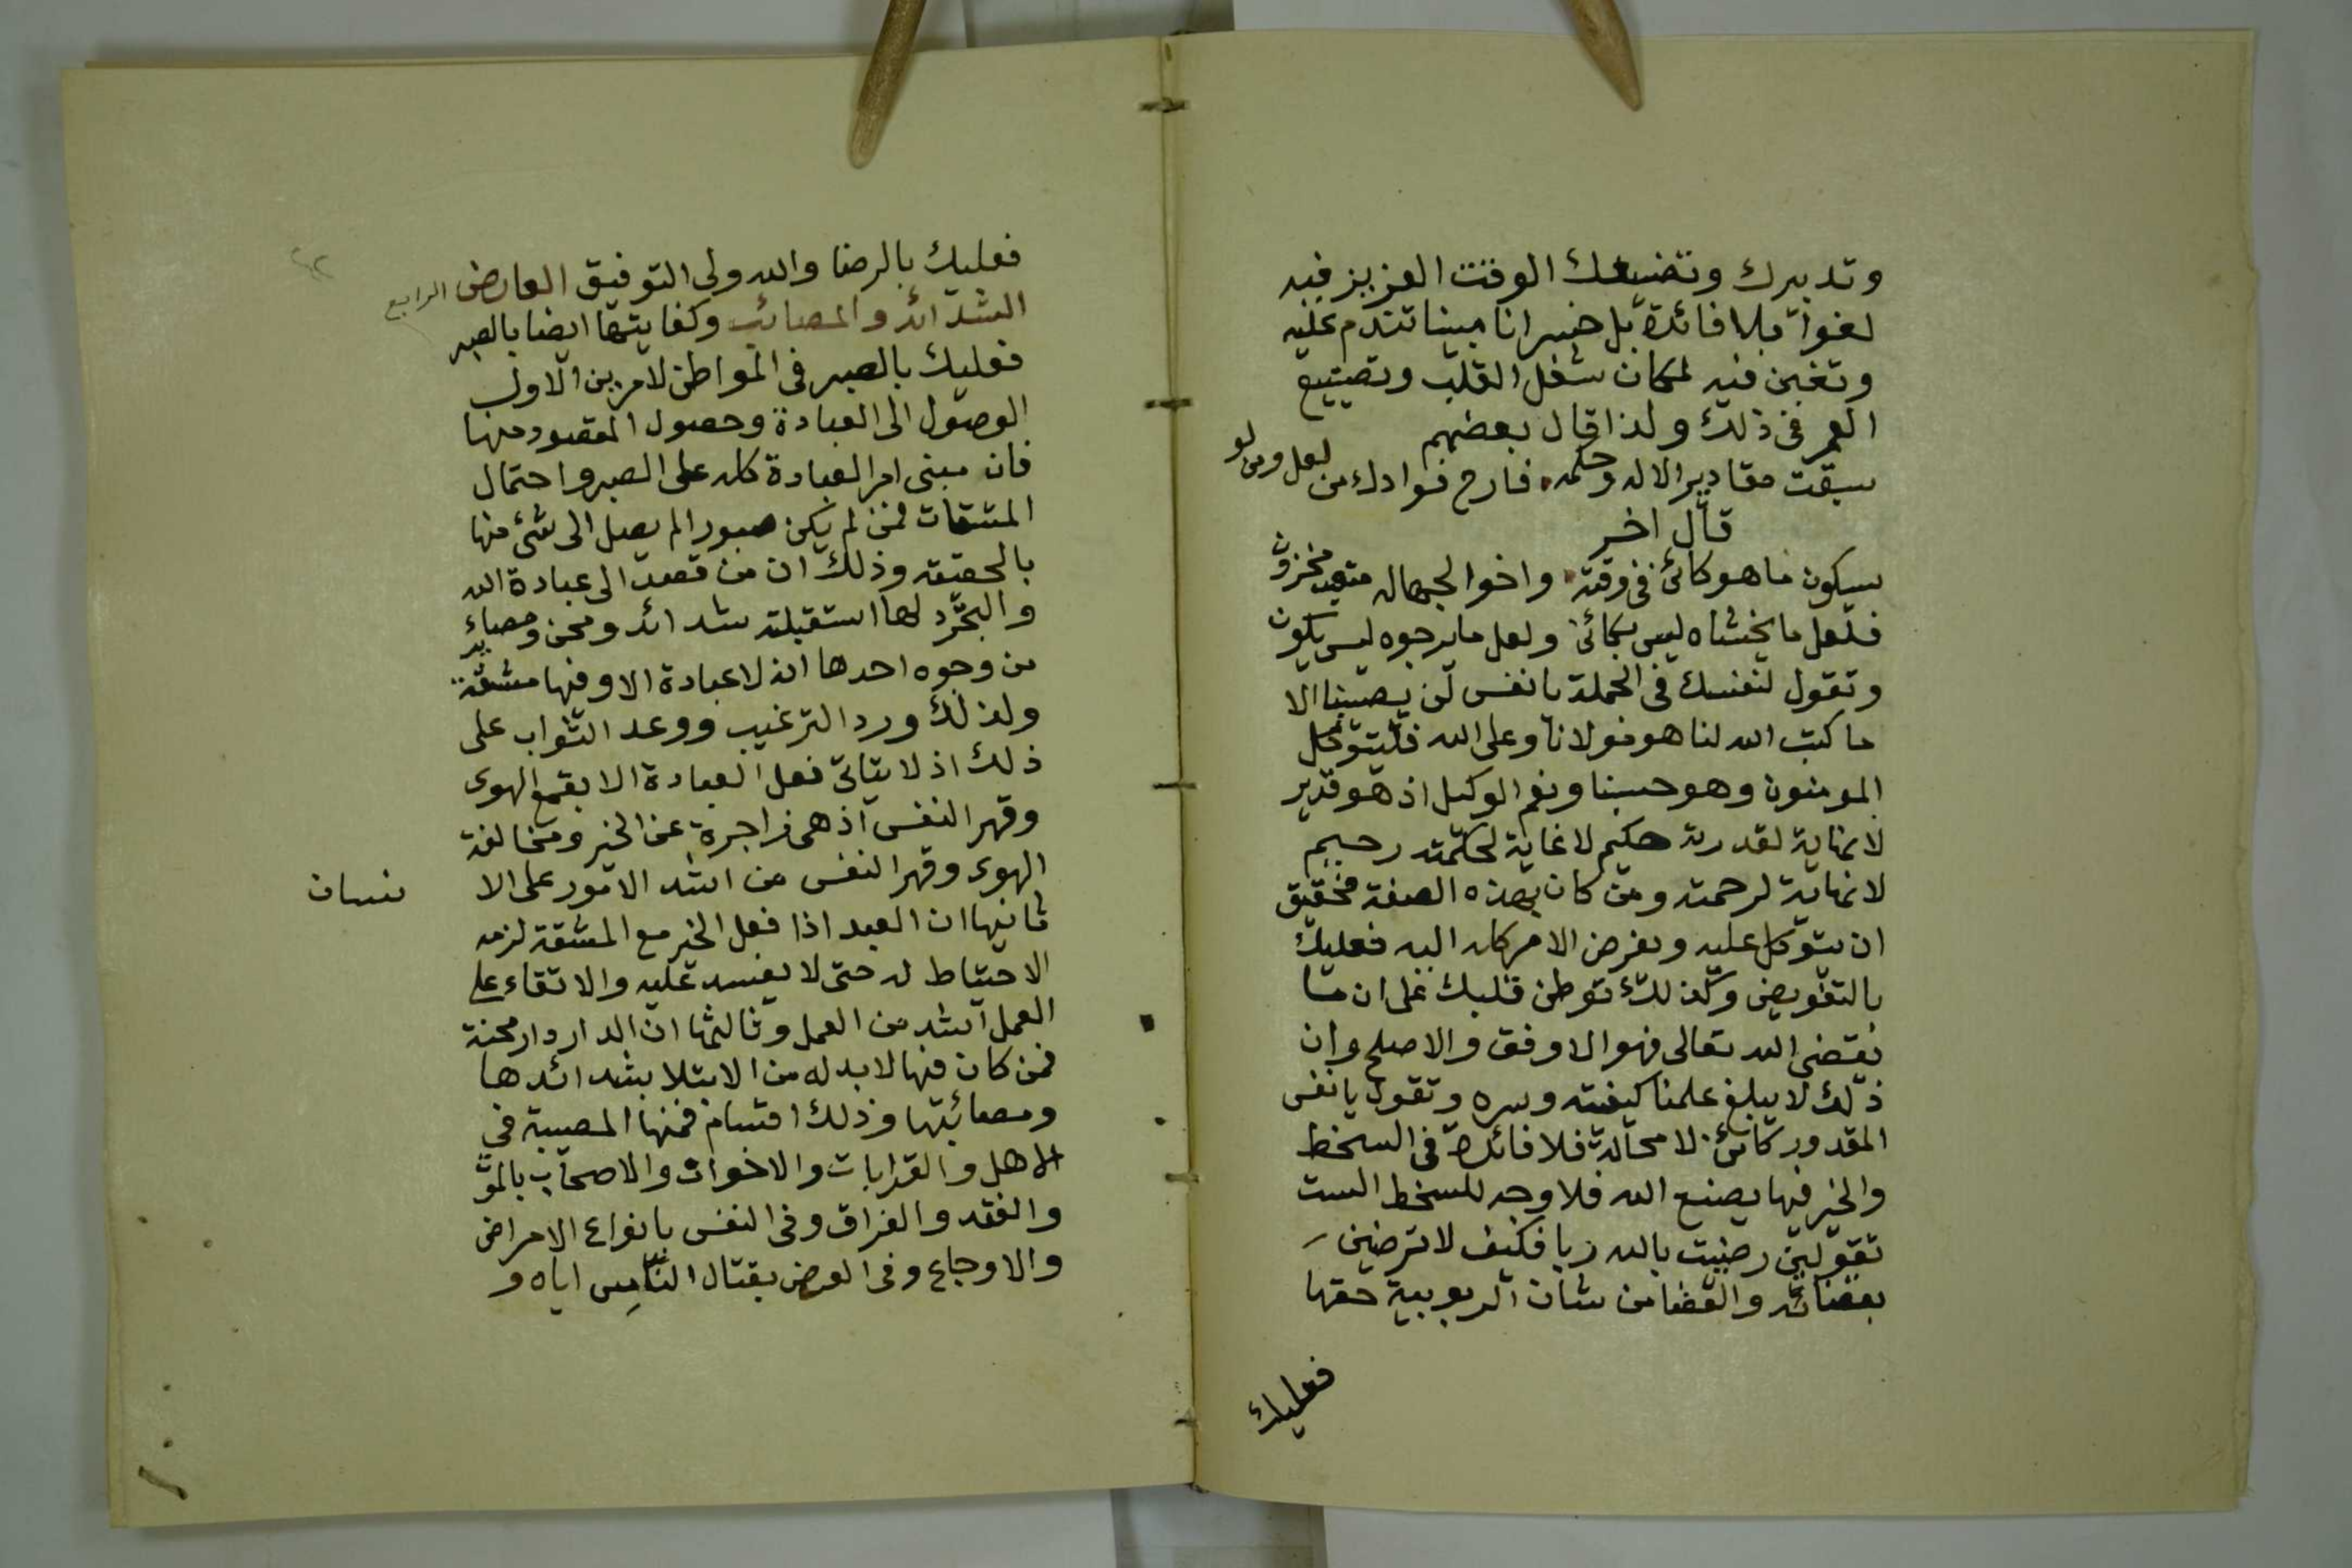 وتدبيرك وتضيعك الوقت العزيز فيه
لغوا بلا فائدة بل خسرانا مبينا تندم عليه
وتغبن فيه لمكان شغل القلب وتضييع
العمر فى ذلك ولذا قال بعضهم
سبقت مقادير الاله وحكمه فارح فوادك من لعل ومن لو
قال اخر
سيكون ما هو كائن فى وقته واخوا الجهاله متعب محزون
فلعل ما يخشاه ليس بكائن ولعل ما يرجوه ليس يكون
وتقول لنفسك فى الجملة يا نفس لن يصيبنا الا
ما كتب الله لنا هو مولانا وعلى الله فليتوكل
المومنون وهو حسبنا ونعم الوكيل اذ هو قدير
لا نهاية لقدرته حكيم لا غاية لحكمته رحيم
لا نهاية لرحمته ومن كان بهذه الصفة فحقيق
ان يتوكل عليه ويفرض الامر كله اليه فعليك
بالتفويض وكذلك توطن قلبك على ان ما
يقتضى الله تعالى فهو الاوفق والاصلح وان
ذلك لا يبلغ علمنا كيفيته وسره وتقول يا نفس
المقدور كائن لا محالة فلا فائدة فى السخط
والخير فيما يصنع الله فلا وجه للسخط الست
تقولين رضيت بالله ربا فكيف لا ترضين
بقضائه والقضا من شان الربوبية حقها
فعليك
فعليك بالرضا والله ولى التوفيق العارض الرابع
الشدائد والمصائب وكفايتها ايضا بالصبر
فعليك بالصبر فى المواطن لامرين الاول
الوصول الى العبادة وحصول المقصود منها
فان مبنى امر العبادة كله على الصبر واحتمال
المشقات فمن لم يكن صبورا لم يصل الى شئ منها
بالحقيقه وذلك ان من قصد الى عبادة الله
والتجرد لها استقبلته شدائد ومحن ومصائب
من وجوه احدها انه لا عبادة الا وفيها مشقة
ولذلك ورد الترغيب ووعد الثواب على
ذلك اذ لا يتاتى فعل العبادة الا بقمع الهوى
وقهر النفس اذ هى زاجرة عن الخير ومخالفة
الهوى وقهر النفس من اشد الامور على الا نسان
ثانيها ان العبد اذا فعل الخير مع المشقة لزمه
الاحتياط له حتى لا يفسد عليه والاتقاء على
العمل اشد من العمل وثالثها ان الدار دار محنة
فمن كان فيها لا بد له من الابتلا بشدائدها
ومصائبها وذلك اقسام فمنها المصيبة فى
الاهل والقرابات والاخوان والاصحاب بالموت
والفقد والفراق وفى النفس بانواع الامراض
والاوجاع وفى العرض بقتال الناس اياه و